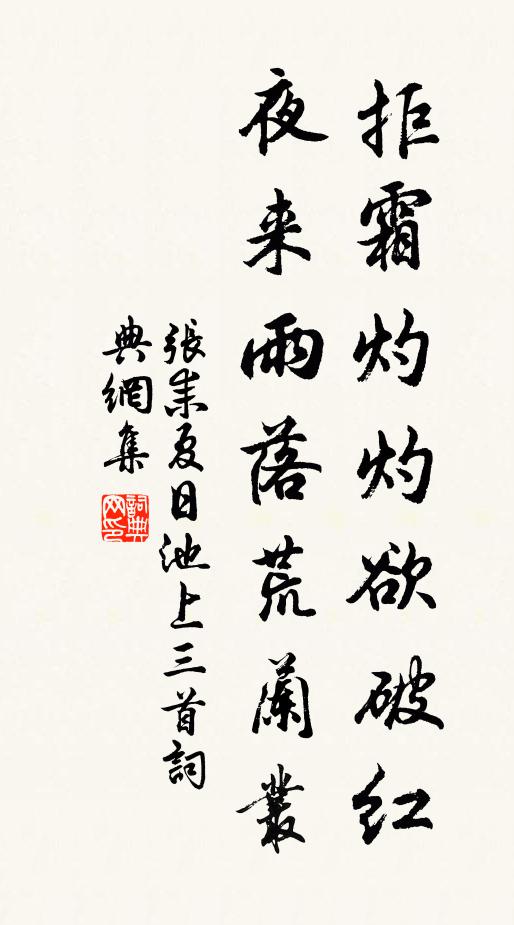 拒霜灼灼欲破紅
夜来雨落荒蘭叢
張耒夏日池上三首詞
典網集
詞典
网印